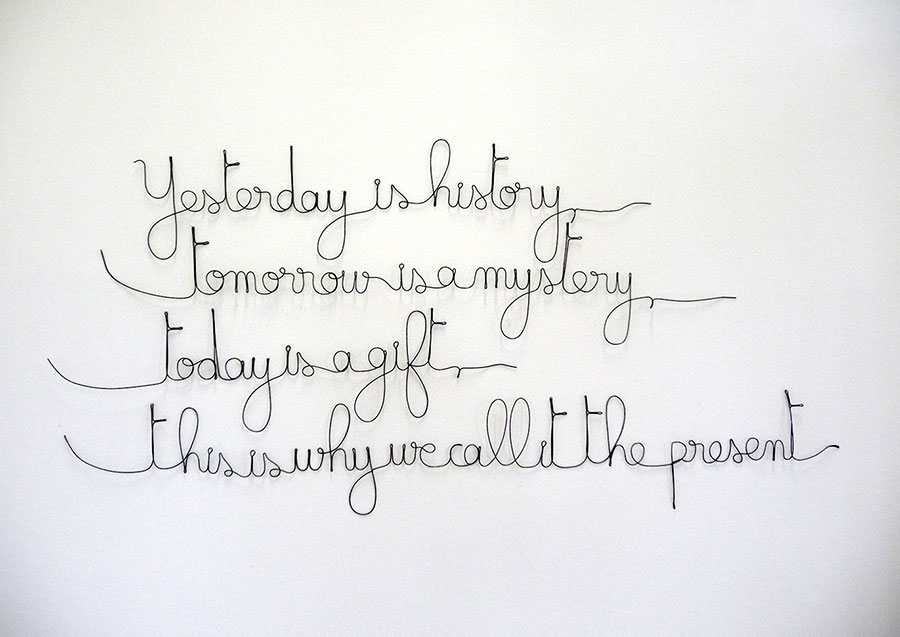 Yesterday is history,
tomorrow is a mystery,
today is a gift,
this is why we call it the present